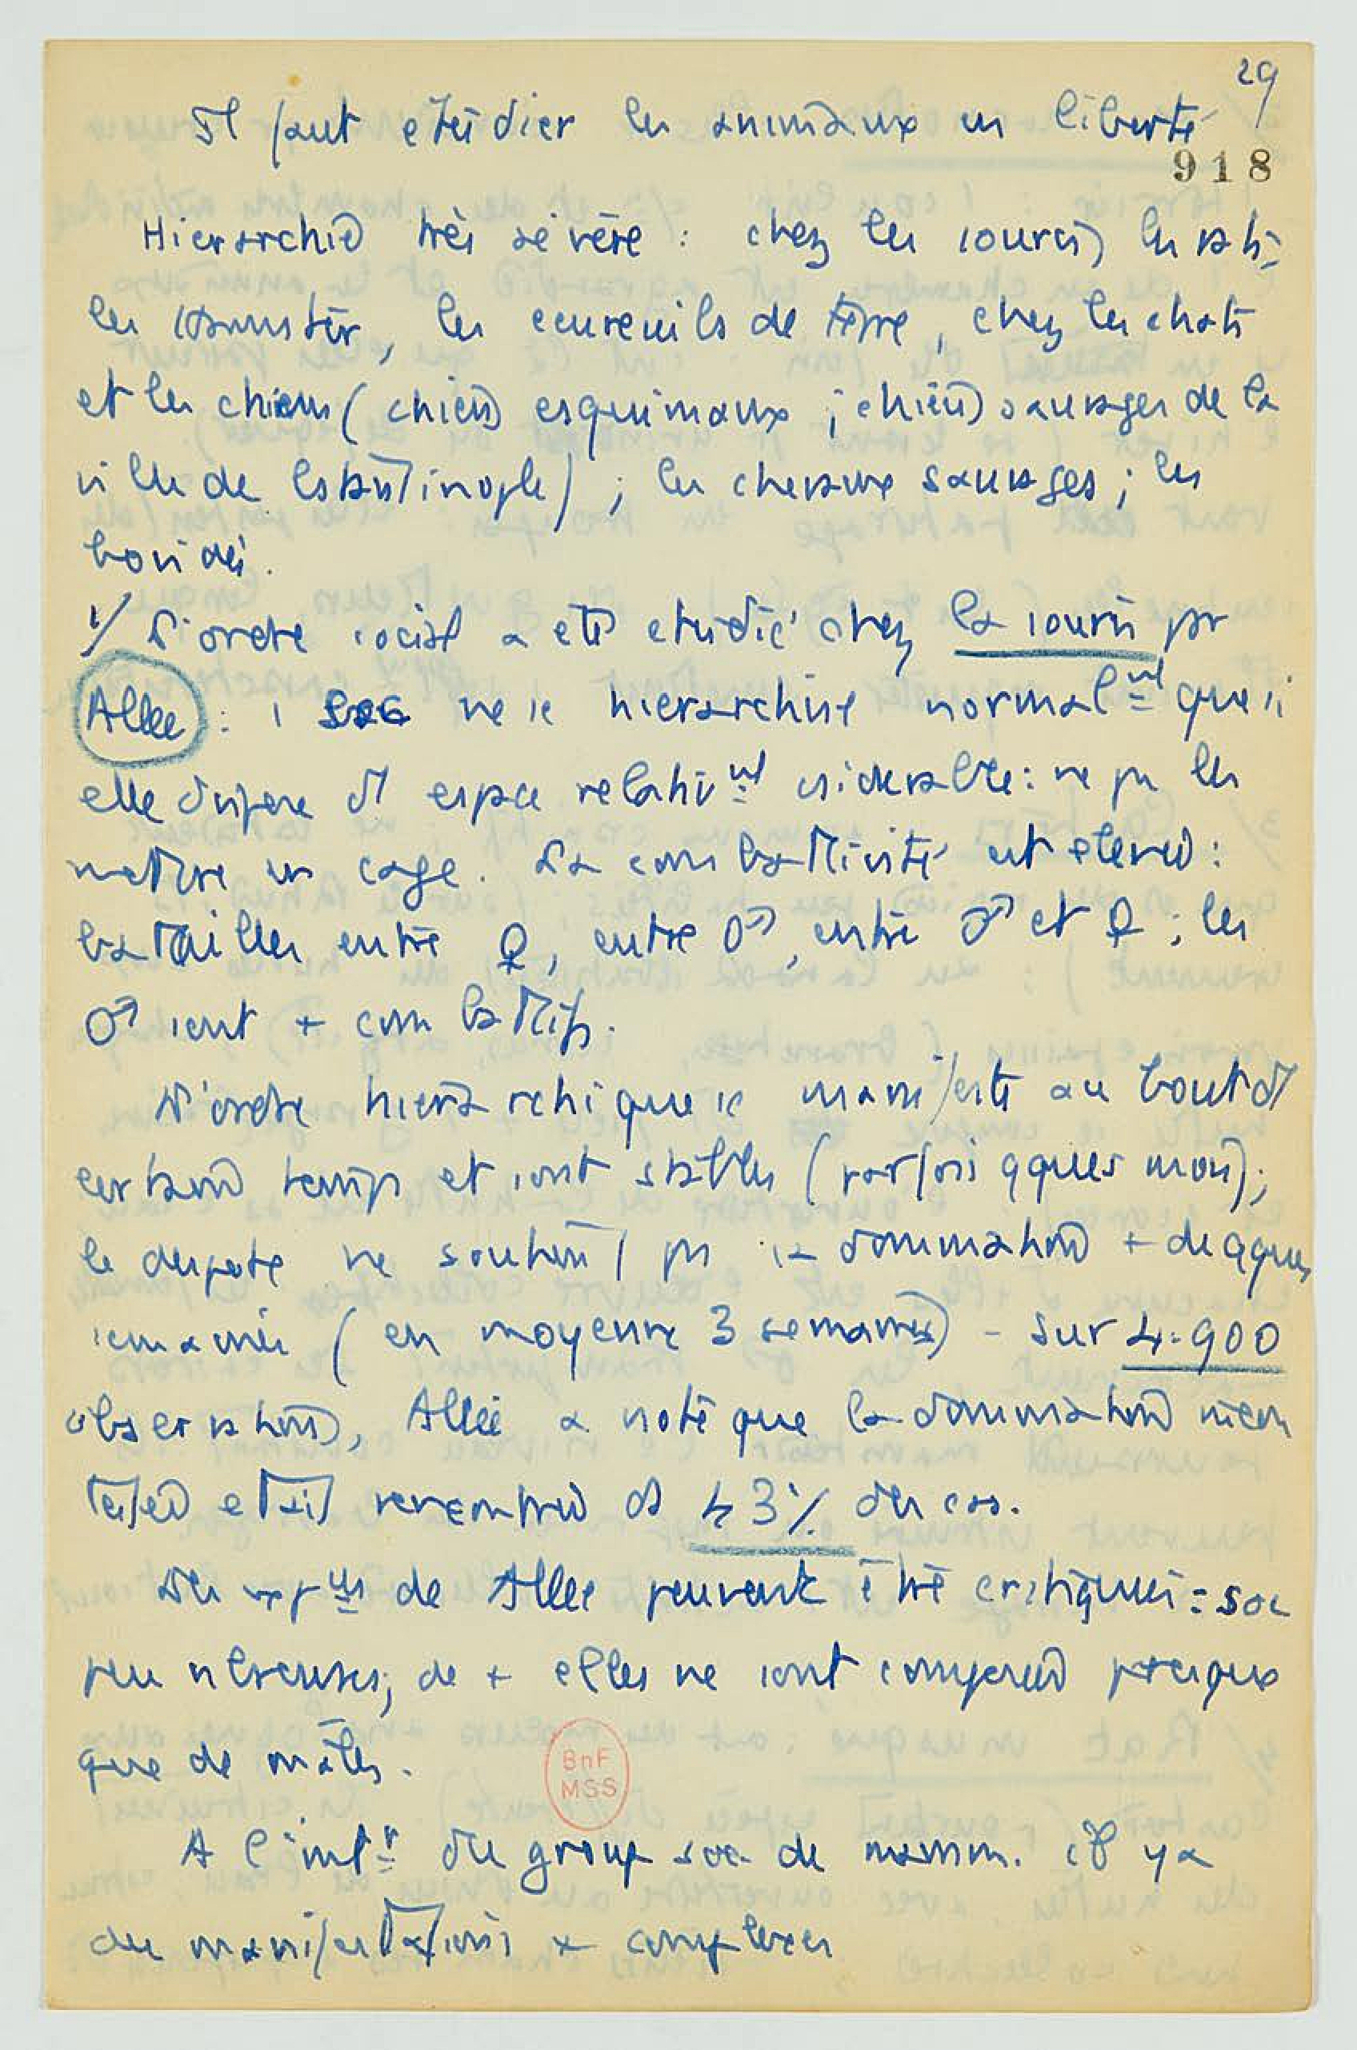 29
Il faut étudier les animaux en liberté
918
Hierarchie très sévère : chez les souris, les rats,
les hamster, les ecureuils de terre, chez les chats
et les chiens (chiens esquimaux ; chiens sauvages de la
ville de Cstantinople) ; les chevaux sauvages ; les
bovidés.
1/ L'ordre social a été étudié chez la souris par
Allee : ne se hierarchise normalnt que si
elle dispose d' espace relativnt csidérable : ne pas les
mettre en cage. La combattivité est elevée :
batailles entre ♀, entre ♂, entre ♂ et ♀ ; les
♂ sont + combattifs.
L'ordre hierarchique se manifeste au bout d'
certain temps et sont stables (parfois qques mois) ;
le despote ne soutient pas sa domination + de qques
semaines (en moyenne 3 semaines) - sur 4.900
observations, Allee a noté que la domination incon
testée était rencontrée ds 43% des cas.
Les expces de Allee peuvent être critiquées : soc
peu nbreuses ; de + elles ne sont composées presque
que de mâles.
BnF
MSS
A l'intr du group soc. de mamm. il y a
des manifestations + complexes